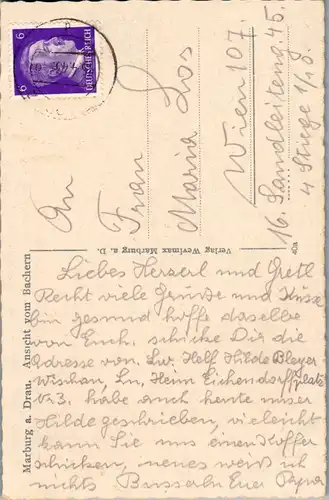 6
6
DEUTSCHES REICH
An
Frau
Maria Los
Wien 107.
16. Sandleiteng 45.
4 Stiege 1/10.
Marburg a. Drau. Ansicht vom Bachern
Verlag Weylmax Marburg a. D.
Liebes Herzerl und Gretl
Recht viele Grüsse und Küsse
bin gesund hoffe dasselbe
von Euch. schicke Dir die
Adresse von. Lw. Helf. Hilde Bleyer
Wischau, Ln, Heim Eichendorffplatz
No 3. habe auch heute unser
Hilde geschrieben, vieleicht
kann Sie uns einen Koffer
schicken, neues weiß ich
nichts Busserln Euer Papa